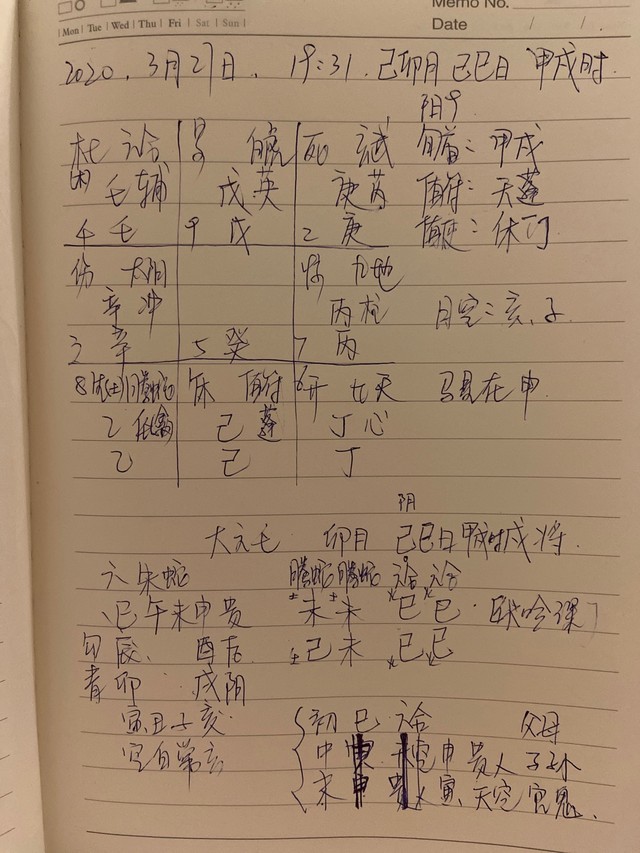 Memo No.
Mon Tue Wed Thu Fri Sat Sun
Date / /
2020.3月27日. 19:31. 己卯月 己巳日 甲戌时.
阳9
杜 景 死 旬首：甲戌
辅 戊 英 庚 芮 值符：天蓬
4 9 戊 2 庚 值使：休门
伤 太阴 惊 九地
辛 冲 丙 柱 日空：亥、子
3 辛 5 癸 7 丙
8 生(土) 腾蛇 休 值符 6 开 九天 马星在申.
乙 任 己 蓬 丁 心
乙 己 丁
阴
大六壬 卯月 己巳日甲戌时戌将.
六 朱 蛇 腾蛇 腾蛇 六合 六合
巳 午 未 申 贵 土 未 土 未 火 巳 火 巳
勾 辰、 酉 后 土 己 未 火 巳 火 巳
青 卯 戌 阴
寅 丑 子 亥 初 巳 六合 父母
空 白 常 玄 中 申 贵人 子孙
末 寅、天空 官鬼.